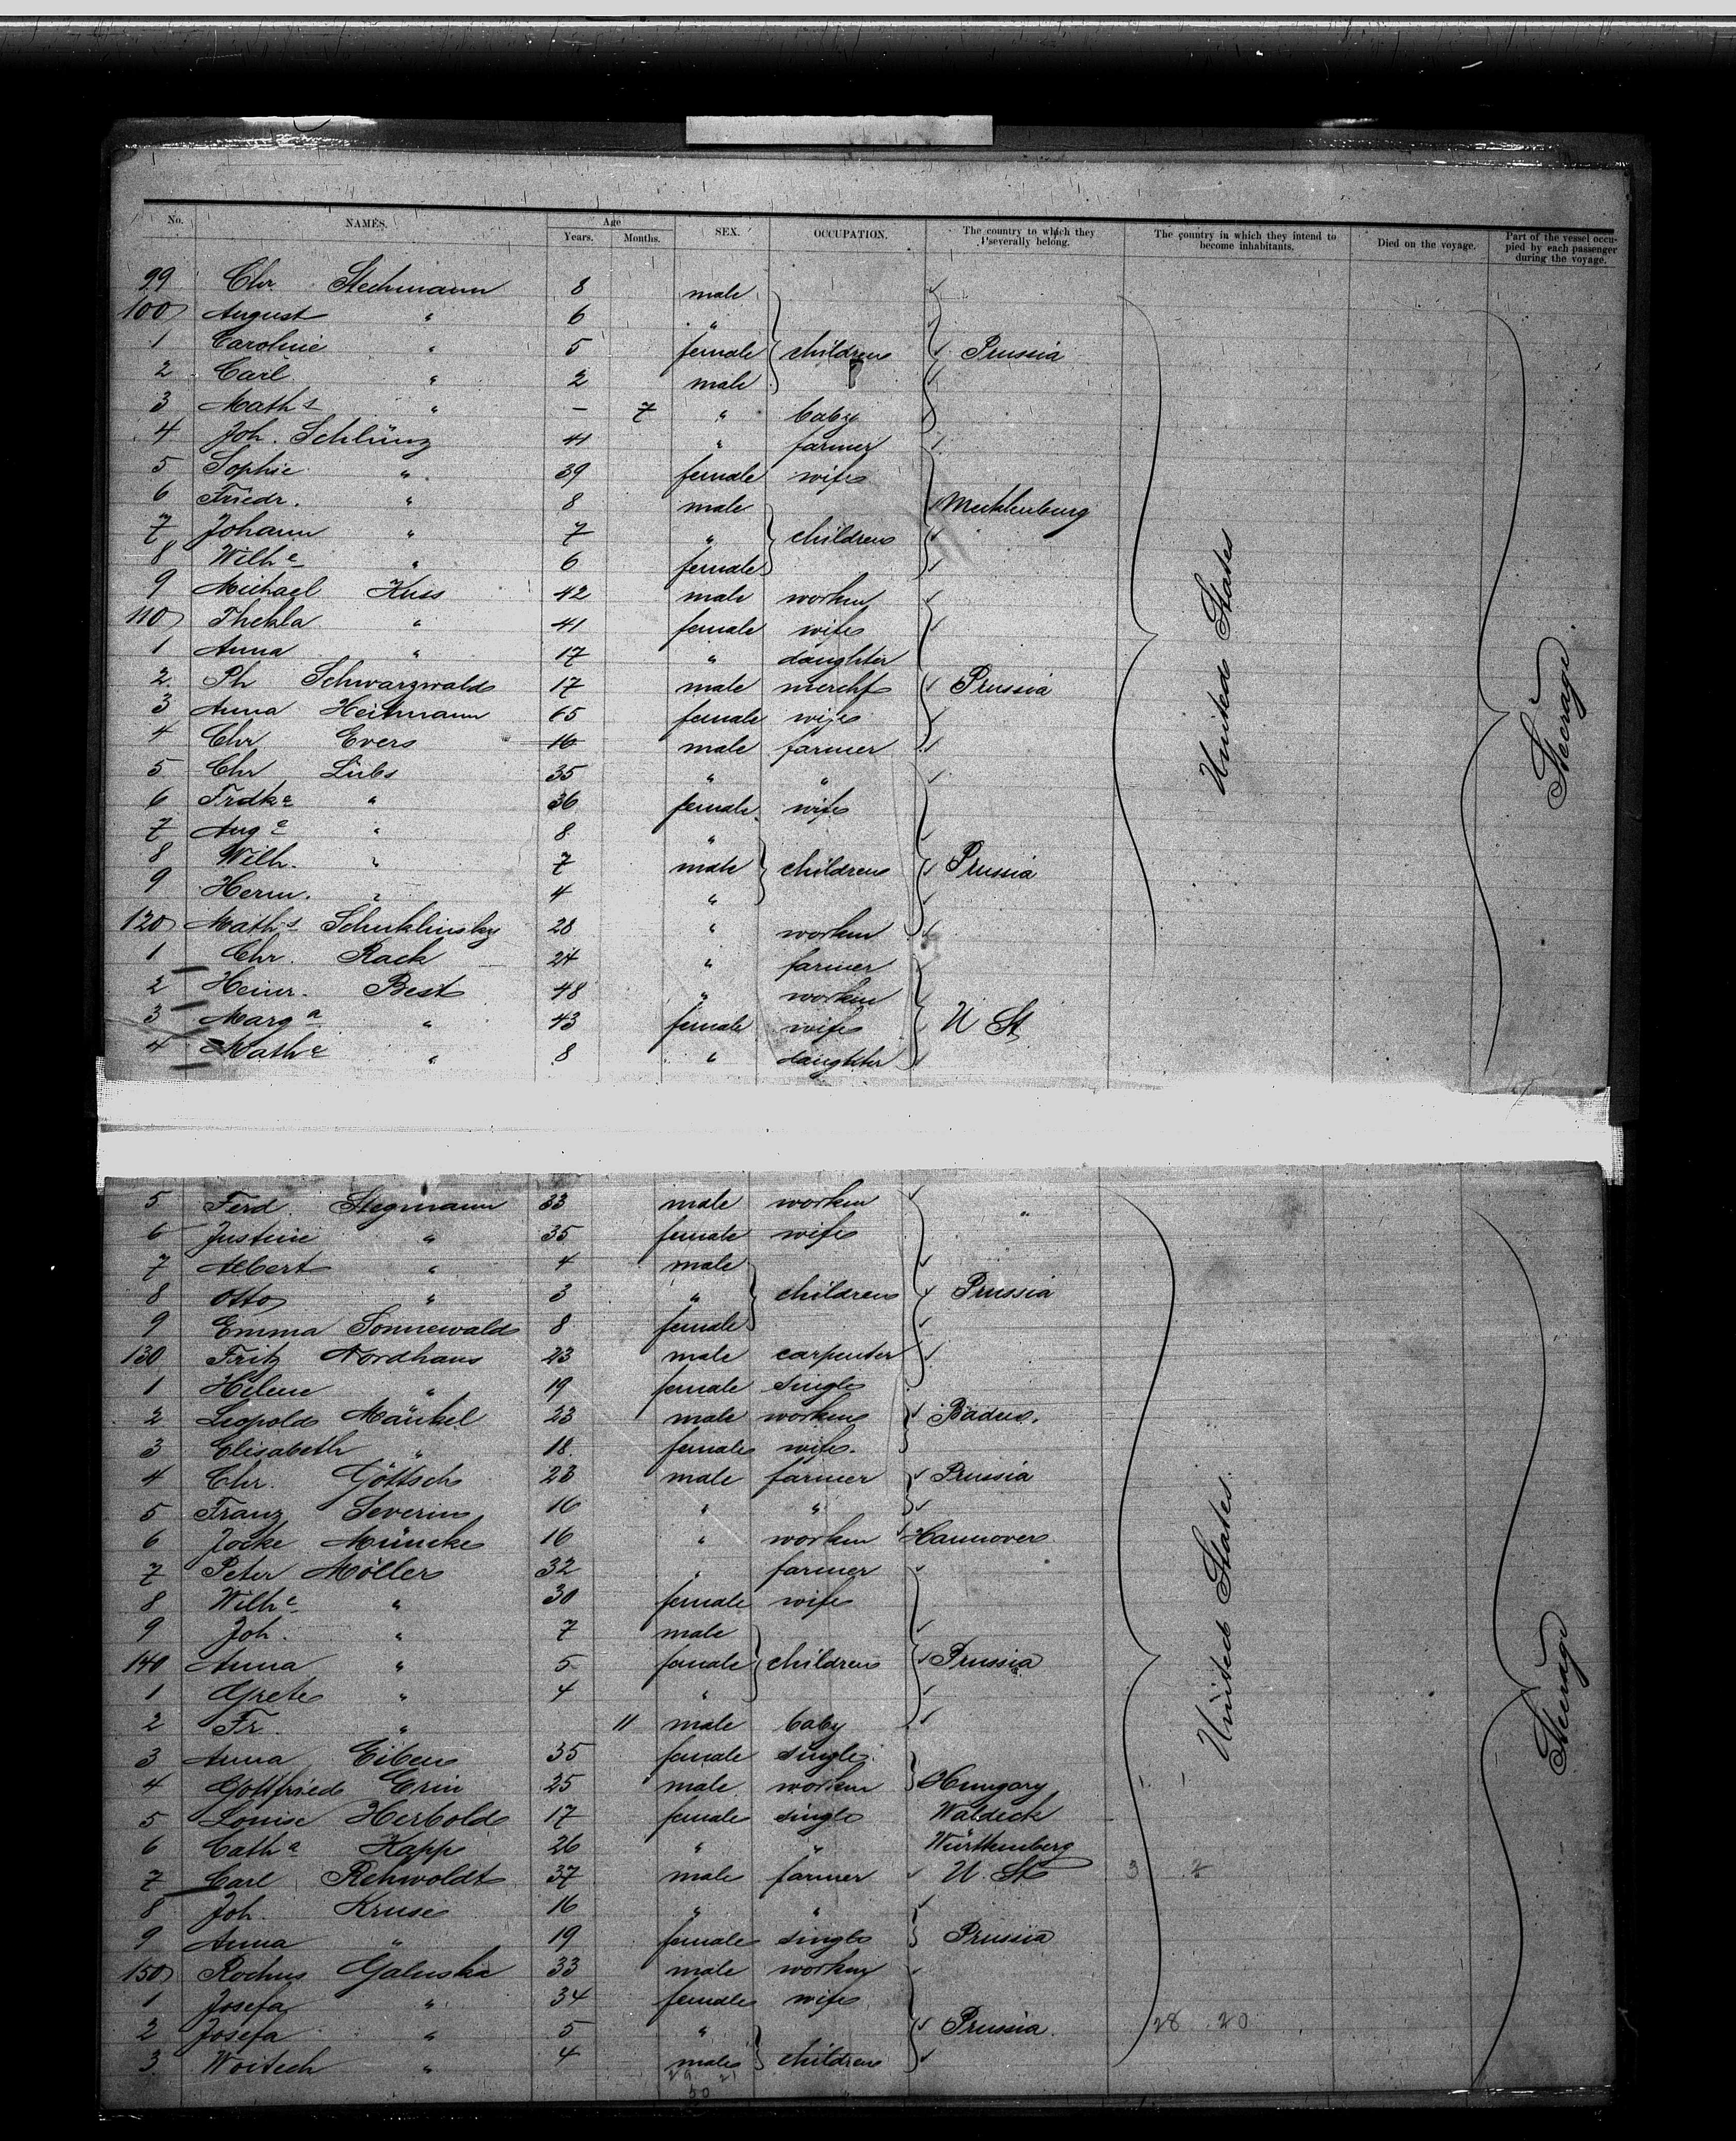 No. NAMES. Age Years. Months. SEX. OCCUPATION. The country to which they severally belong. The country in which they intend to become inhabitants. Died on the voyage. Part of the vessel occupied by each passenger during the voyage.
99 Chr. Stechmann 8 male
100 August " 6 "
1 Caroline " 5 female children Prussia
2 Carl " 2 male
3 Maths " - 7 " baby
4 Joh. Schlünz 41 " farmer
5 Sophie " 39 female wife
6 Friedr. " 8 male Mecklenburg
7 Johann " 7 " children
8 Wilhe " 6 female
9 Michael Kuss 42 male workm
110 Thekla " 41 female wife
1 Anna " 17 " daughter
2 Ph Schwarzwald 17 male mercht Prussia
3 Anna Heitmann 65 female wife
4 Chr Evers 16 male farmer
5 Chr Lübs 35 " "
6 Frdke " 36 female wife
7 Auge " 8 "
8 Wilh. " 7 male children Prussia
9 Herm. " 4 "
120 Maths Schuklinsky 28 " workm
1 Chr. Rack 24 " farmer
2 Heinr. Best 48 " workm
3 Marga " 43 female wife U St
4 Mathe " 8 " daughter
United States
Steerage
5 Ferd. Stegmann 33 male workm "
6 Justine " 35 female wife
7 Albert " 4 male
8 Otto " 3 " children Prussia
9 Emma Sonnewald 8 female
130 Fritz Nordhaus 23 male carpenter
1 Helene " 19 female single
2 Leopold Mänkel 23 male workm Baden.
3 Elisabeth " 18 female wife.
4 Chr. Göttsch 23 male farmer Prussia
5 Franz Severin 16 " "
6 Jocke Müncke 16 " workm Hannover
7 Peter Möller 32 " farmer
8 Wilhe " 30 female wife
9 Joh. " 7 male
140 Anna " 5 female children Prussia
1 Grete " 4 "
2 Fr. " 11 male baby
3 Anna Eiben 35 female single
4 Gottfried Erin 25 male workm Hungary
5 Louise Herbold 17 female single Waldeck
6 Catha Kapp 26 " " Württemberg
7 Carl Rehwoldt 37 male farmer U. St 3 2
8 Joh. Kruse 16 " "
9 Anna " 19 female single Prussia
150 Rochus Galuska 33 male workm
1 Josefa " 34 female wife
2 Josefa " 5 " Prussia 28 20
3 Woitech " 4 male children
29 21
50
United States
Steerage